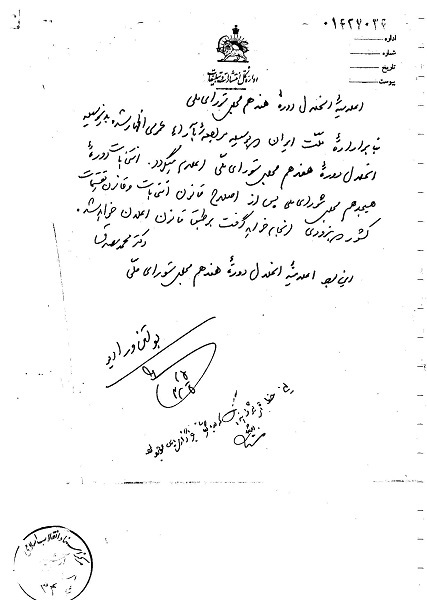 اداره
شماره
تاریخ
پیوست
اداره کل انتشارات و تبلیغات
اعلامیهٔ انحلال دورهٔ هفدهم مجلس شورای ملی
بنا بر ارادهٔ ملت ایران که بوسیله مراجعه به آراء عمومی اظهار شده بدینوسیله
انحلال دورهٔ هفدهم مجلس شورای ملی اعلام میگردد. انتخابات دورهٔ
هیجدهم مجلس شورای ملی پس از اصلاح قانون انتخابات و قانون تقسیمات
کشور که بزودی انجام خواهد گرفت بر طبق قانون اعلان خواهد شد.
دکتر محمد مصدق
این بود اعلامیهٔ انحلال دورهٔ هفدهم مجلس شورای ملی
بولتن و رادیو
مرکز اسناد انقلاب اسلامی